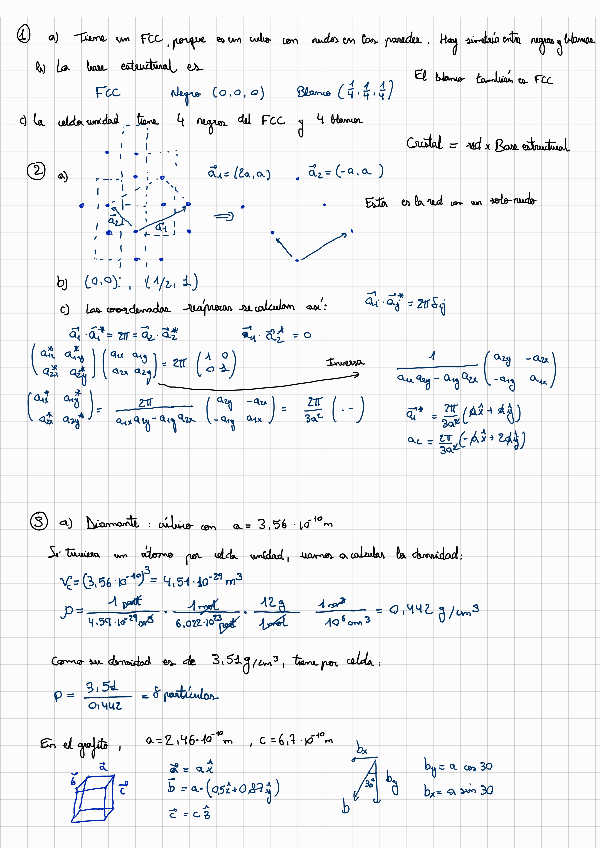 ① a) Tiene un FCC, porque es un cubo con nudos en las paredes. Hay simetría entre negros y blancos
b) La base estructural es
El blanco también es FCC
FCC Negro (0,0,0) Blanco (1/4, 1/4, 1/4)
c) La celda unidad tiene 4 negros del FCC y 4 blancos
Cristal = red x Base estructural
② a) a⃗₁ = (2a, a) a⃗₂ = (-a, a)
Esta es la red con un solo nudo
a⃗₂ a⃗₁ ⇒
b) (0,0); (1/2, 1)
c) Las coordenadas recíprocas se calculan así: a⃗ᵢ · a⃗ⱼ* = 2πδᵢⱼ
a⃗₁ · a⃗₁* = 2π = a⃗₂ · a⃗₂* a⃗₁ · a⃗₂* = 0
(a₁ₓ* a₁ᵧ* / a₂ₓ* a₂ᵧ*) (a₁ₓ a₁ᵧ / a₂ₓ a₂ᵧ) = 2π (1 0 / 0 1) Inversa 1/(a₁ₓ a₂ᵧ - a₁ᵧ a₂ₓ) (a₂ᵧ -a₂ₓ / -a₁ᵧ a₁ₓ)
(a₁ₓ* a₁ᵧ* / a₂ₓ* a₂ᵧ*) = 2π/(a₁ₓ a₂ᵧ - a₁ᵧ a₂ₓ) (a₂ᵧ -a₂ₓ / -a₁ᵧ a₁ₓ) = 2π/3a² (· -)
a⃗₁* = 2π/3a² (a x̂ + a ŷ)
a₂ = 2π/3a² (-a x̂ + 2a ŷ)
③ a) Diamante: cúbico con a = 3,56 · 10⁻¹⁰ m
Si tuviera un átomo por celda unidad, vamos a calcular la densidad:
Vc = (3,56 · 10⁻¹⁰)³ = 4,51 · 10⁻²⁹ m³
ρ = 1 part / 4.59 · 10⁻²⁹ m³ · 1 mol / 6,022 · 10²³ part · 12 g / 1 mol · 1 m³ / 10⁶ cm³ = 0,442 g/cm³
Como su densidad es de 3,51 g/cm³, tiene por celda:
ρ = 3,51 / 0,442 = 8 partículas
En el grafito, a = 2,46 · 10⁻¹⁰ m, c = 6,7 · 10⁻¹⁰ m
a⃗ b⃗ c⃗
a⃗ = a x̂
b⃗ = a · (0,5 x̂ + 0,87 ŷ)
c⃗ = c ẑ
bx 30 by b
by = a cos 30
bx = a sin 30